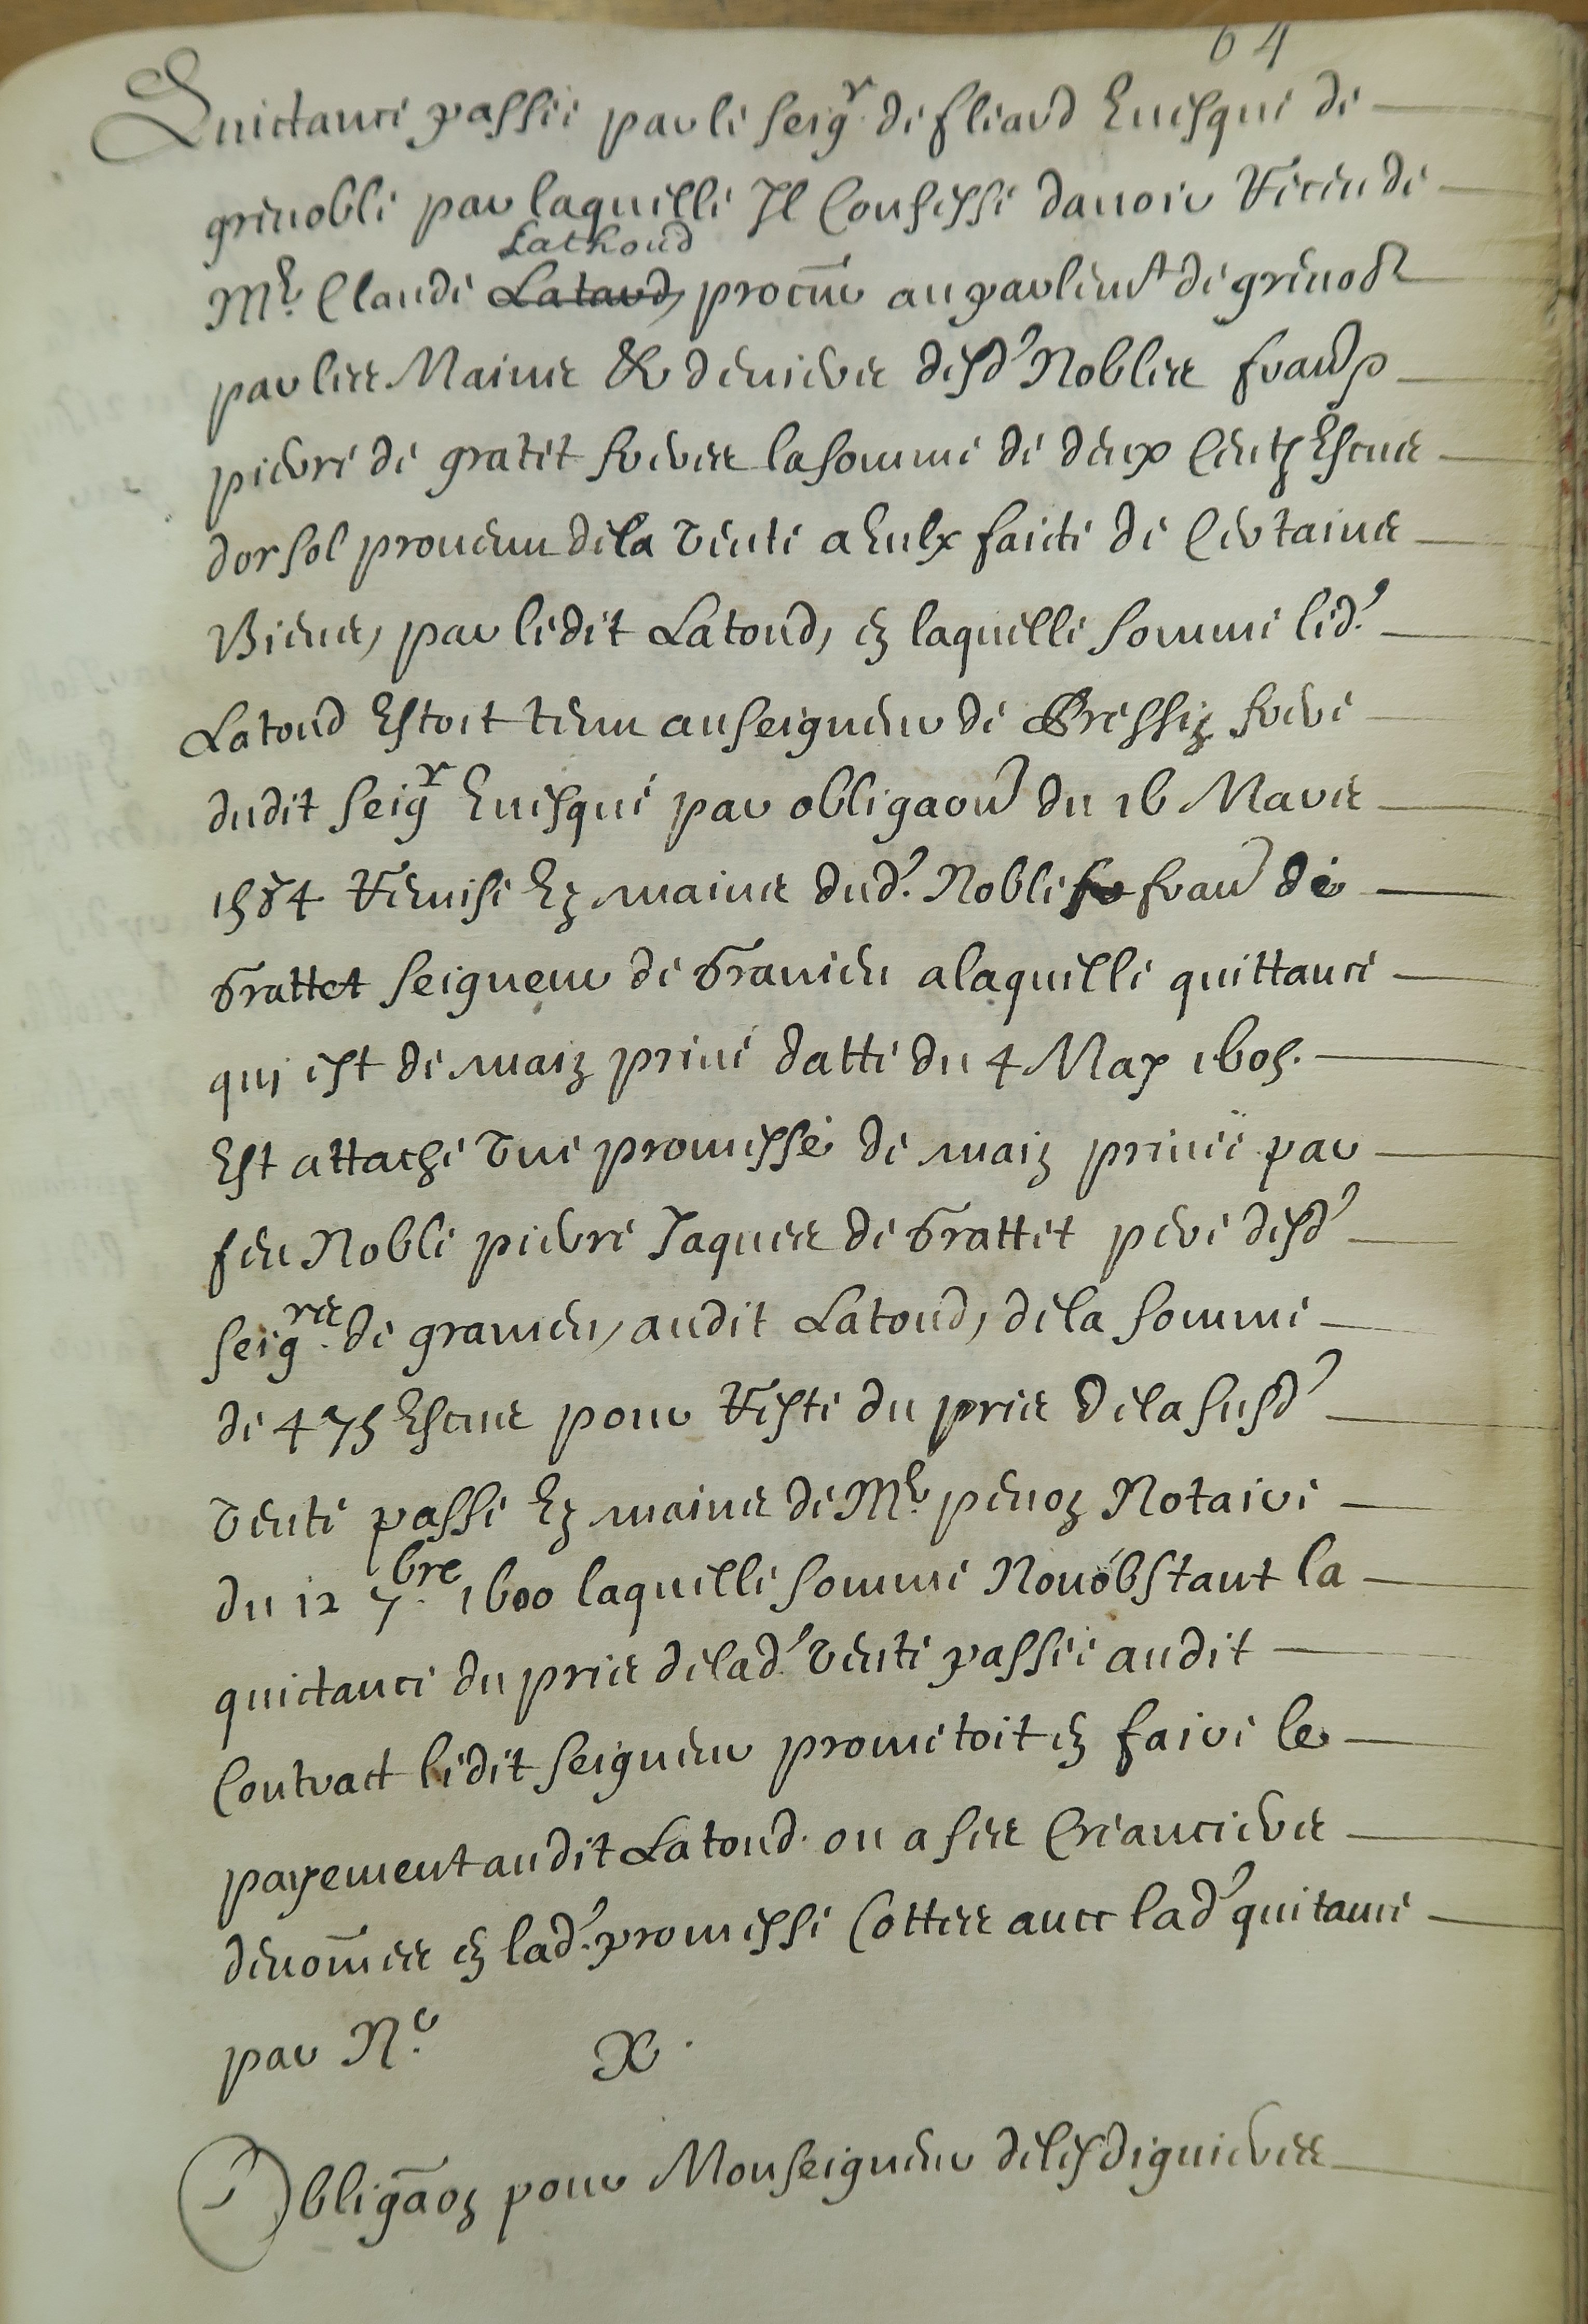 64
Quictance passée par le seigr de fleard Euesque de
grenoble par laquelle Il Confesse dauoir Receu de
Lathoud
Mr Claude Lataud, procur au parlemt de grenobl
par les Mains & deniers desd' Nobles francs
pierre de gratet freres la somme de deux Centz Escus
dor sol prouenu de la vente a Eulx faicte de Certains
Biens, par ledit Latoud, en laquelle somme led.
Latoud Estoit tenu au seigneur de Bressin frere
dudit seigr Euesque par obligaon du 16 Mars
1584 Remise Ez mains dud. Noble fr fran de
Grattet seigneur de Granieu a laquelle quittance
qui est de main priué datté du 4 May 1605.
Est attaché vne promesse de main priuée par
feu Noble pierre Jaques de Grattet pere desd'
seigrs de granieu, audit Latoud, de la somme
de 475 Escus pour Reste du pris de la susd'
vente passé Ez mains de Mr penon Notaire
du 12 7bre 1600 laquelle somme Nonobstant la
quictance du pris de lad' vente passée audit
Contract ledit seigneur prometoit en faire le
payement audit Latoud. ou a ses Creanciers
denomes en lad. promesse Cottes auec lad' quitance
par N.o X.
Obligaon pour Monseigneur delesdiguieres